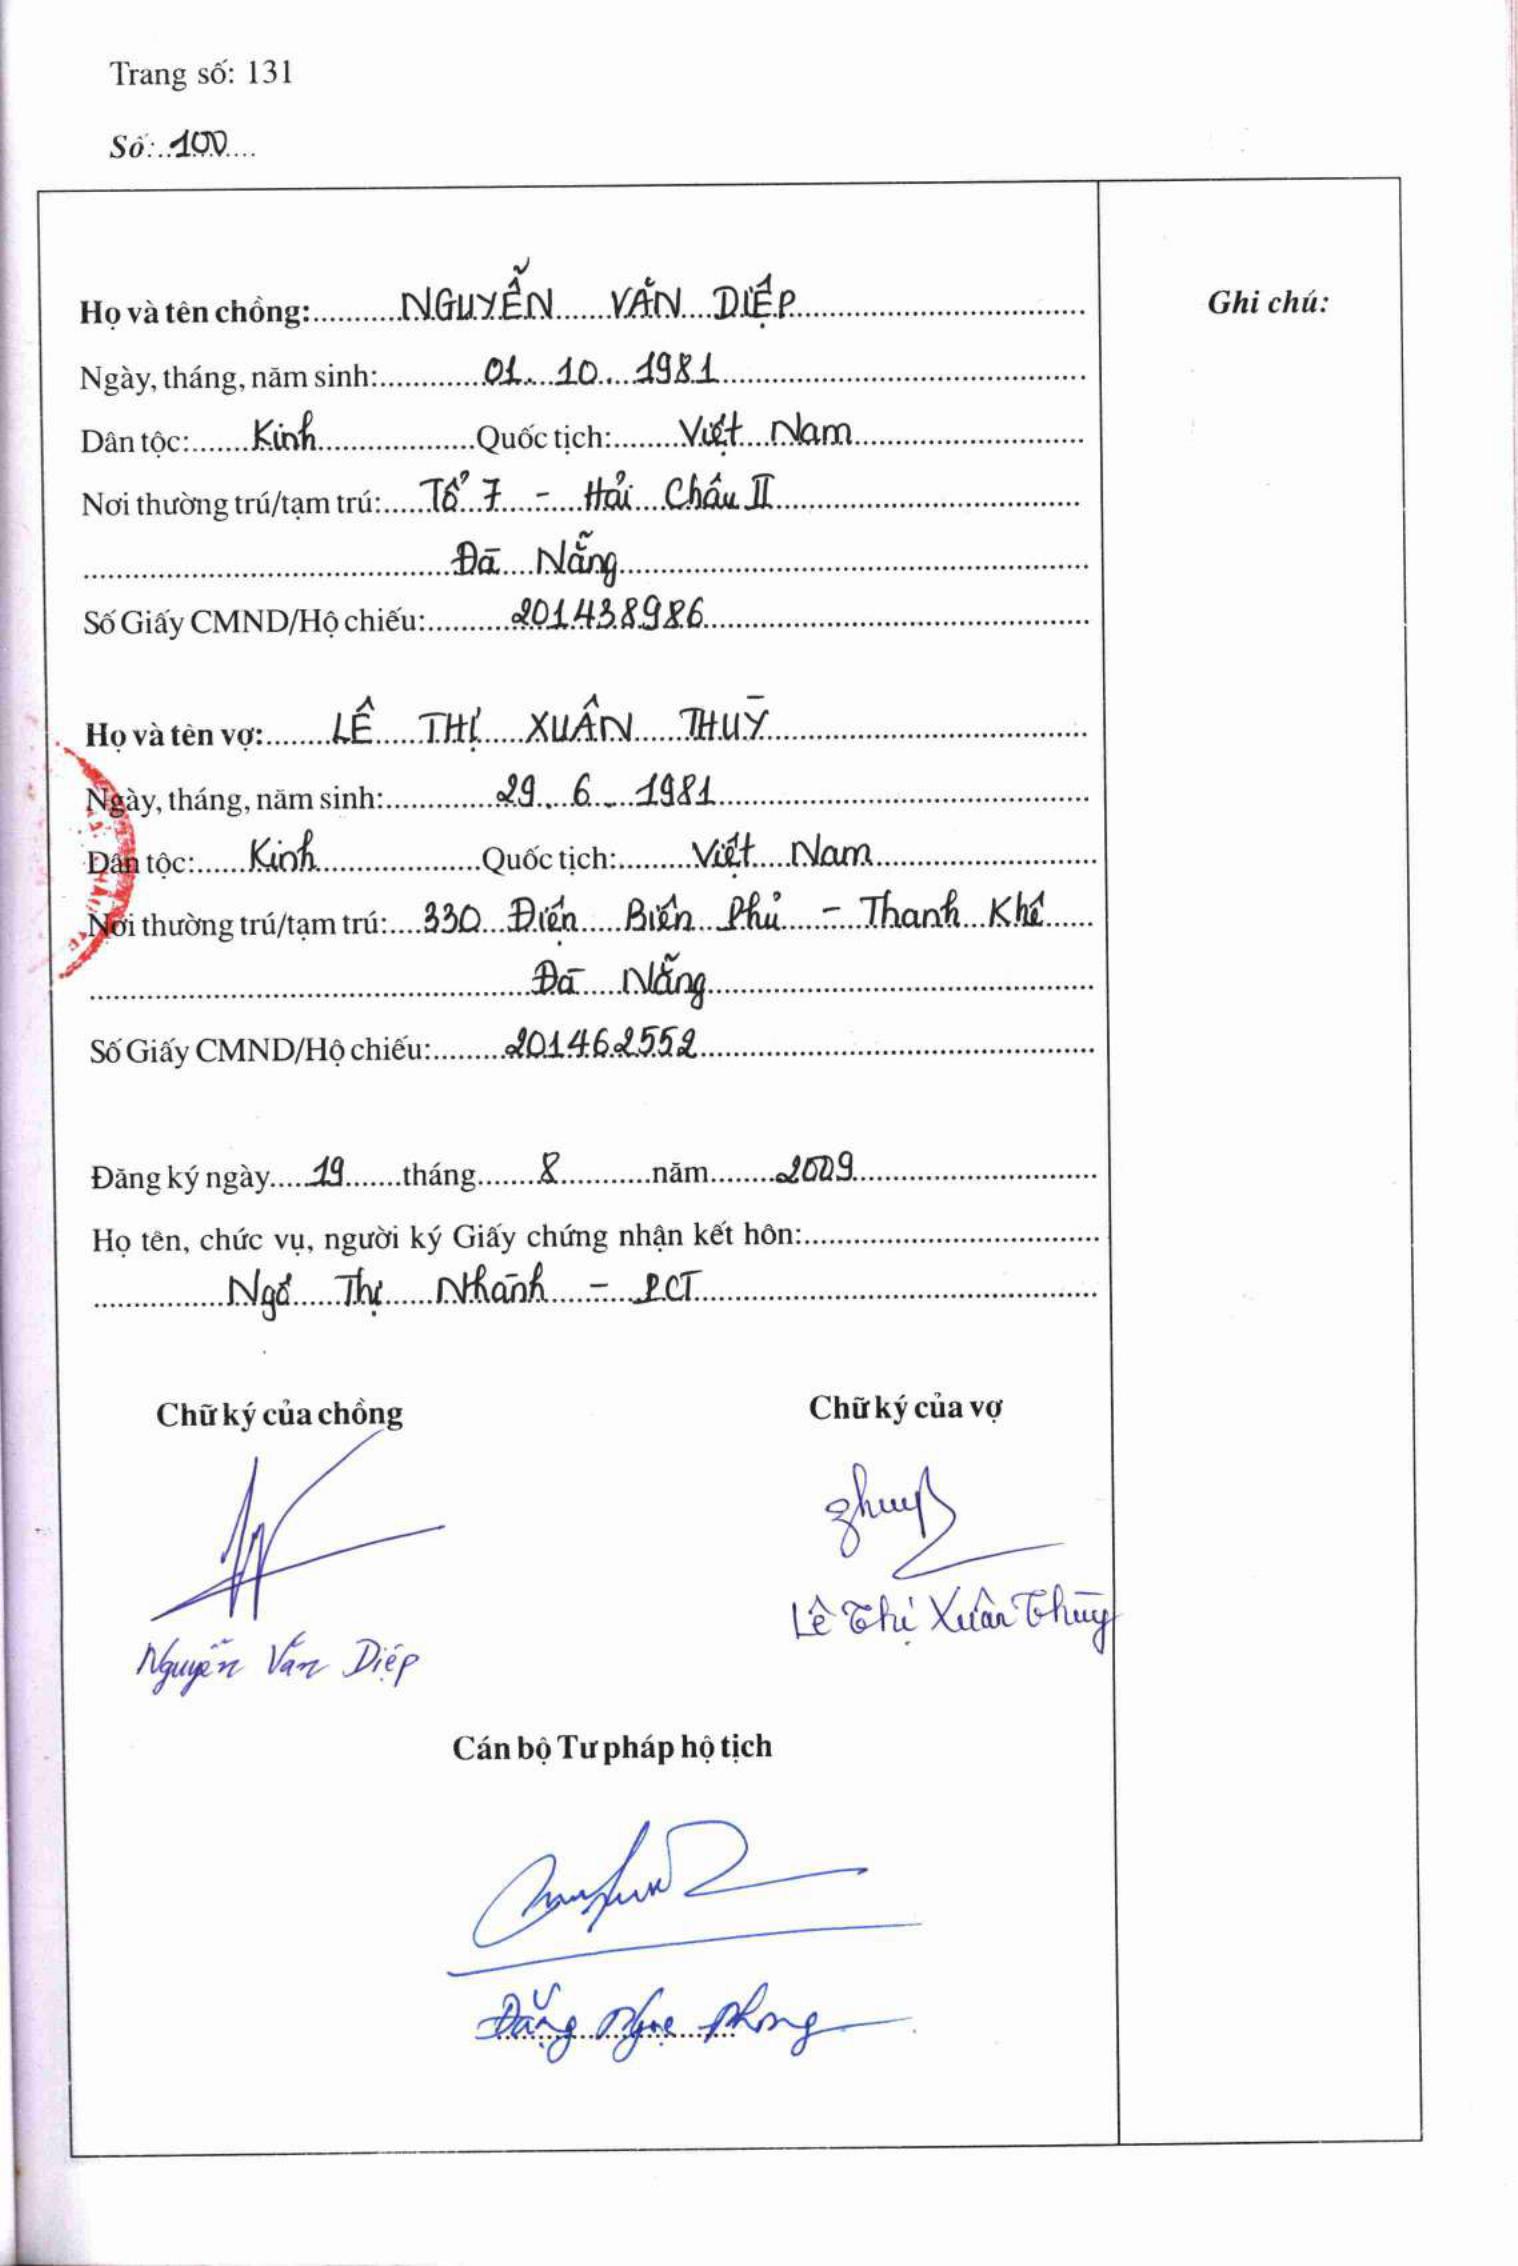 Trang số: 131
Số: 100
Họ và tên chồng: NGUYỄN VĂN DIỆP
Ghi chú:
Ngày, tháng, năm sinh: 01. 10. 1981
Dân tộc: Kinh Quốc tịch: Việt Nam
Nơi thường trú/tạm trú: Tổ 7 - Hải Châu II
Đà Nẵng
Số Giấy CMND/Hộ chiếu: 201438986
Họ và tên vợ: LÊ THỊ XUÂN THUỲ
Ngày, tháng, năm sinh: 29. 6. 1981
Dân tộc: Kinh Quốc tịch: Việt Nam
Nơi thường trú/tạm trú: 330 Điện Biên Phủ - Thanh Khê
Đà Nẵng
Số Giấy CMND/Hộ chiếu: 201462552
Đăng ký ngày 19 tháng 8 năm 2009
Họ tên, chức vụ, người ký Giấy chứng nhận kết hôn:
Ngô Thị Nhành - PCT
Chữ ký của chồng Chữ ký của vợ
Lê Thị Xuân Thùy
Nguyễn Văn Diệp
Cán bộ Tư pháp hộ tịch
Đặng Ngọc Phong